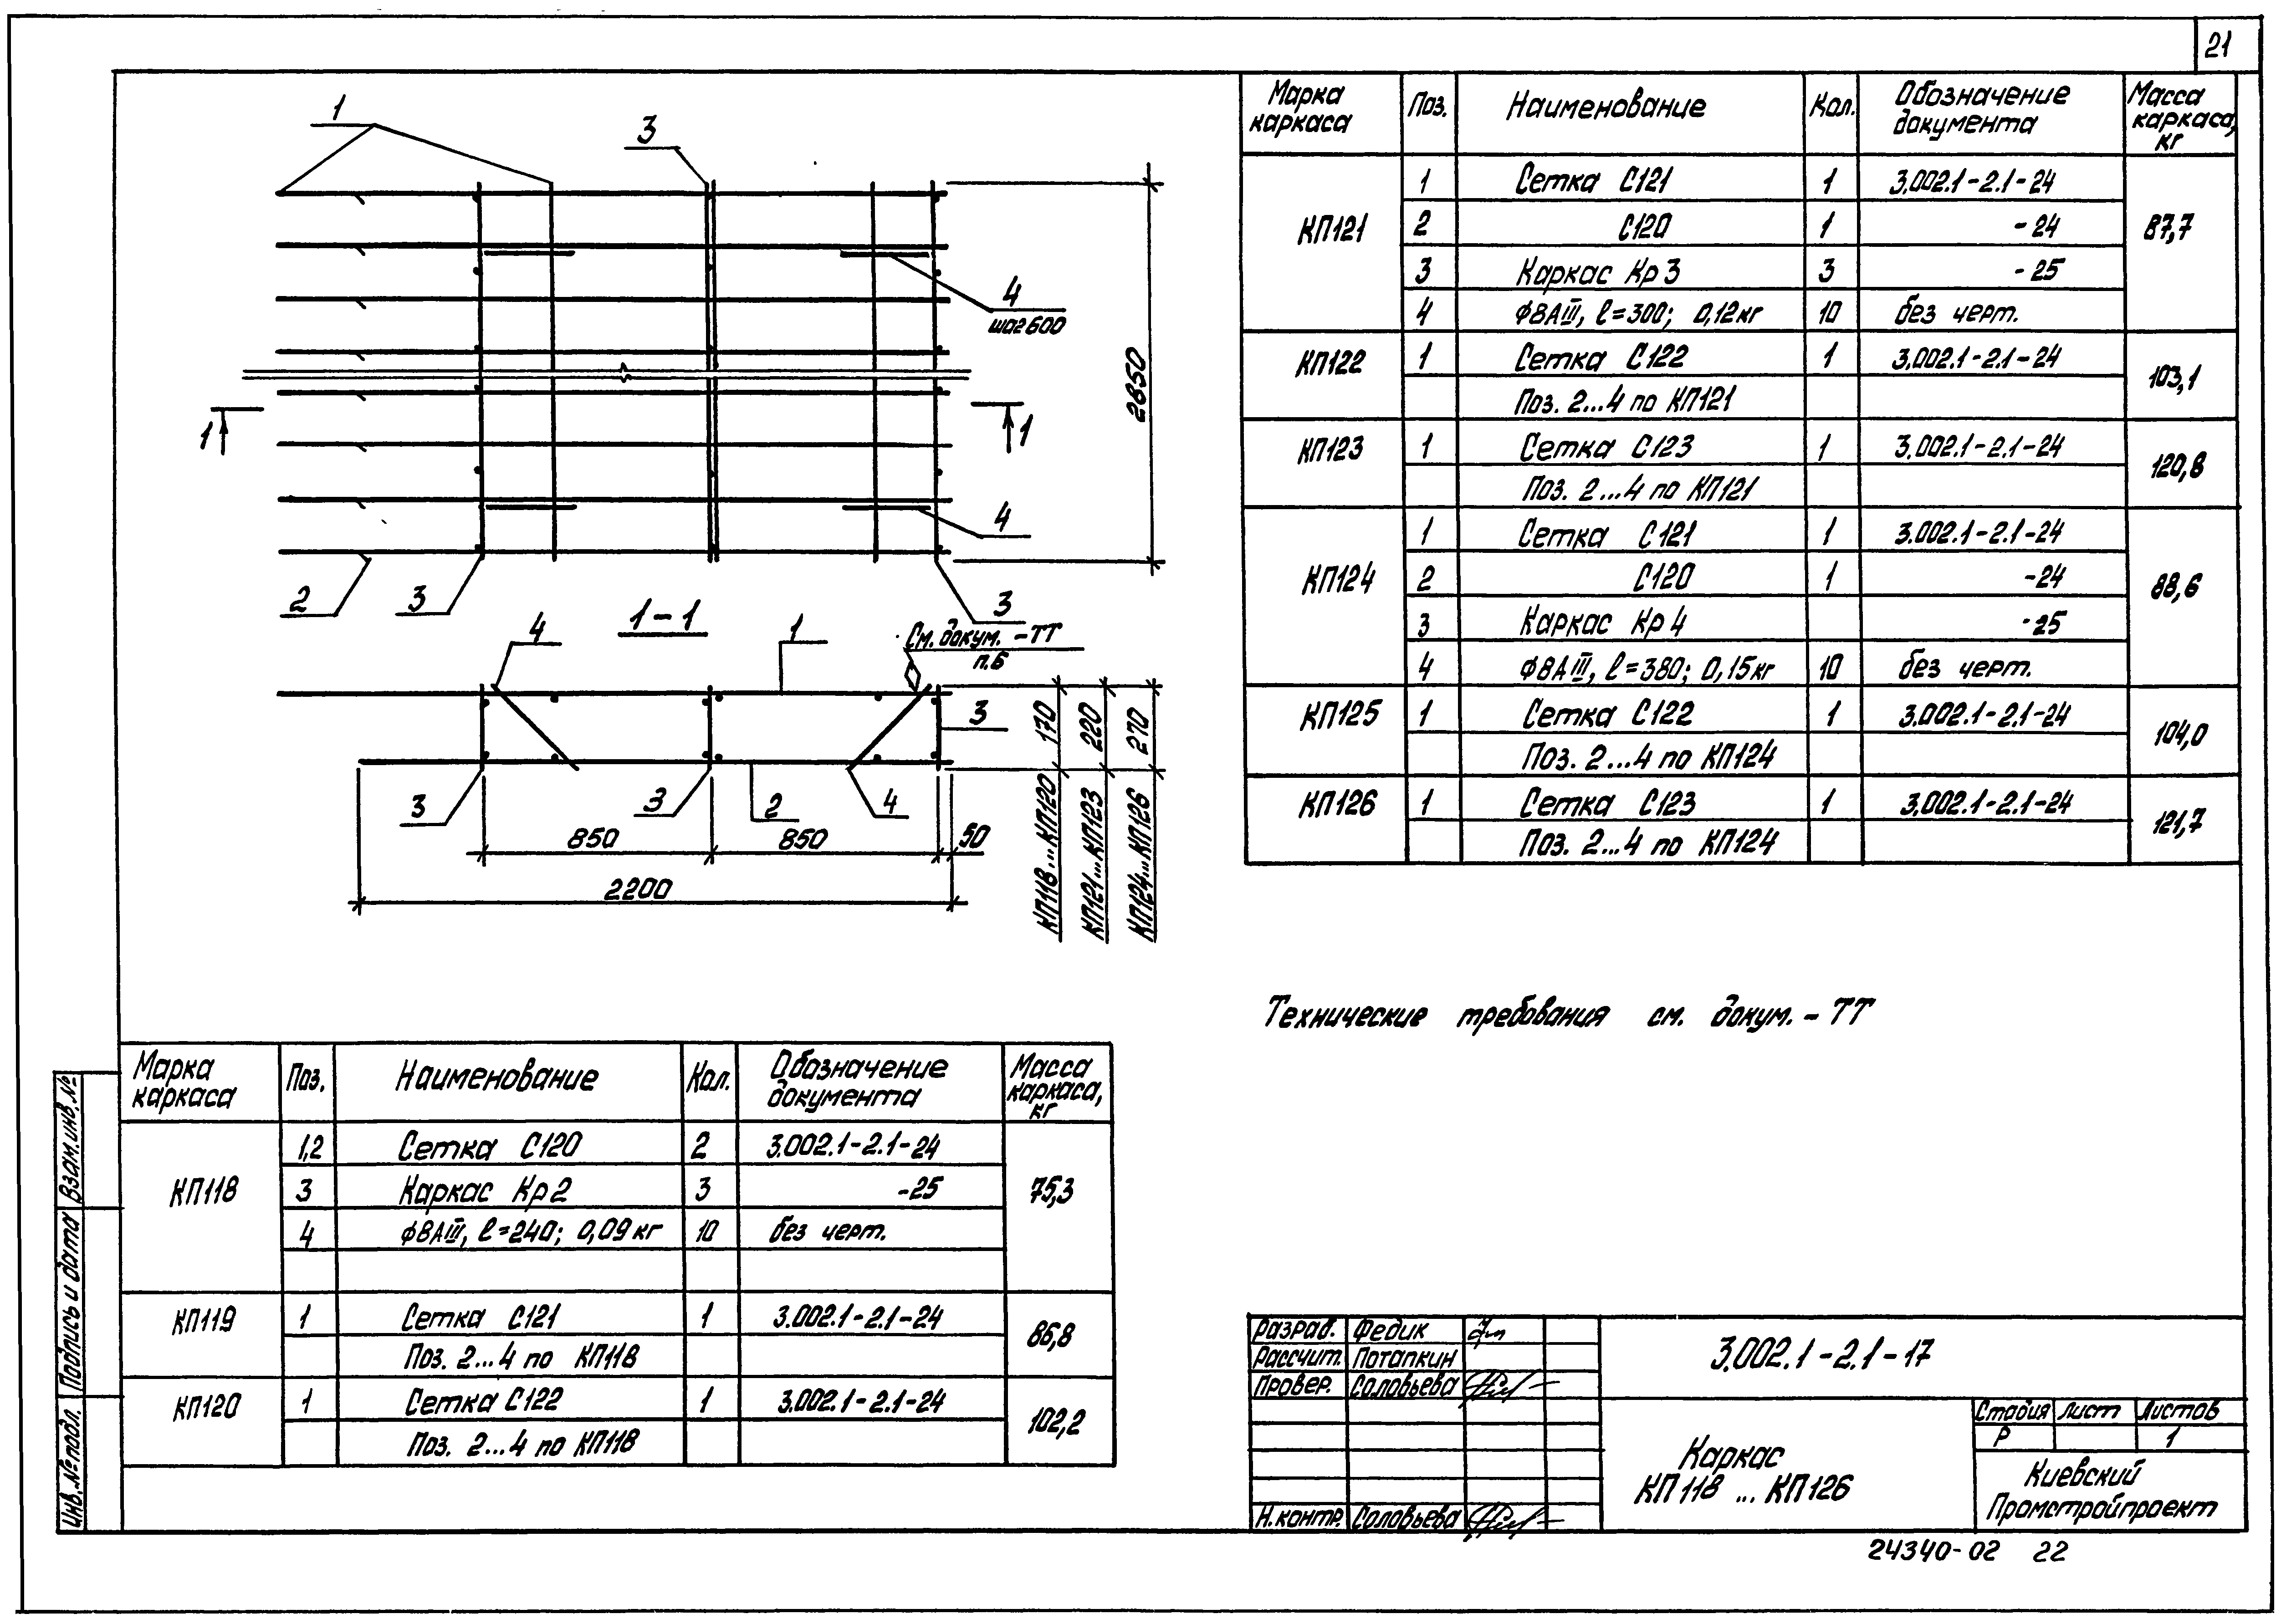 21
1
3
4
шаг 600
2850
1
1
4
2
3
3
1-1
4
1
См. докум. -ТТ
п.6
3
170
220
270
3
3
2
4
850
850
50
2200
КП118...КП120
КП121...КП123
КП124...КП126
Марка каркаса Поз. Наименование Кол. Обозначение документа Масса каркаса, кг
КП121 1 Сетка С121 1 3.002.1-2.1-24 87,7
2 С120 1 -24
3 Каркас Кр3 3 -25
4 ф8АIII, ℓ=300; 0,12кг 10 без черт.
КП122 1 Сетка С122 1 3.002.1-2.1-24 103,1
Поз. 2...4 по КП121
КП123 1 Сетка С123 1 3.002.1-2.1-24 120,8
Поз. 2...4 по КП121
КП124 1 Сетка С121 1 3.002.1-2.1-24 88,6
2 С120 1 -24
3 Каркас Кр4 -25
4 ф8АIII, ℓ=380; 0,15кг 10 без черт.
КП125 1 Сетка С122 1 3.002.1-2.1-24 104,0
Поз. 2...4 по КП124
КП126 1 Сетка С123 1 3.002.1-2.1-24 121,7
Поз. 2...4 по КП124
Технические требования см. докум. - ТТ
Марка каркаса Поз. Наименование Кол. Обозначение документа Масса каркаса, кг
КП118 1,2 Сетка С120 2 3.002.1-2.1-24 75,3
3 Каркас Кр2 3 -25
4 ф8АIII, ℓ=240; 0,09кг 10 без черт.
КП119 1 Сетка С121 1 3.002.1-2.1-24 86,8
Поз. 2...4 по КП118
КП120 1 Сетка С122 1 3.002.1-2.1-24 102,2
Поз. 2...4 по КП118
Взам. инв. №
Подпись и дата
Инв. № подл.
Разраб. Федик
Рассчит. Потапкин
Провер. Соловьева
Н.контр. Соловьева
3.002.1-2.1-17
Каркас
КП118 ... КП126
Стадия Лист Листов
Р 1
Киевский
Промстройпроект
24340-02 22